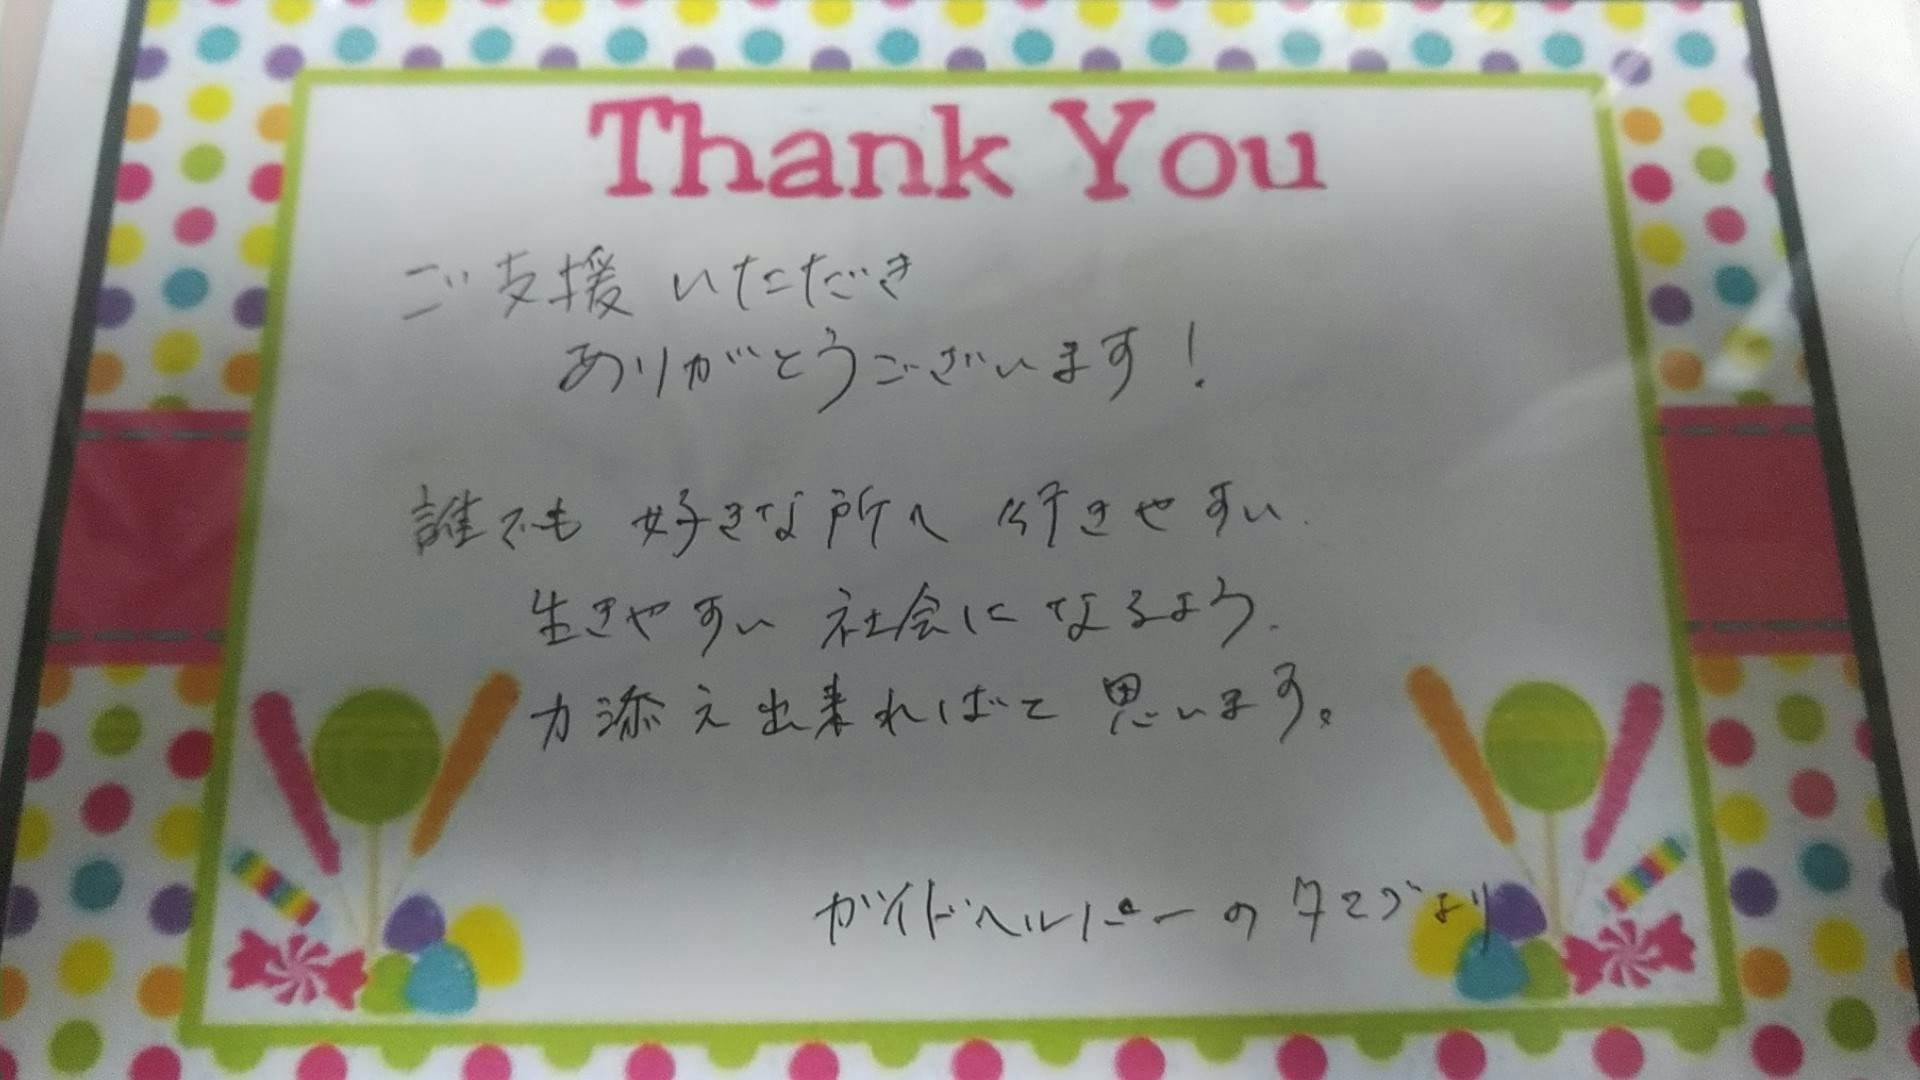 Thank You
ご支援 いただき
ありがとうございます!
誰でも 好きな所へ 行きやすい
生きやすい 社会に なるよう
力添え出来ればと 思います。
ガイドヘルパーの より